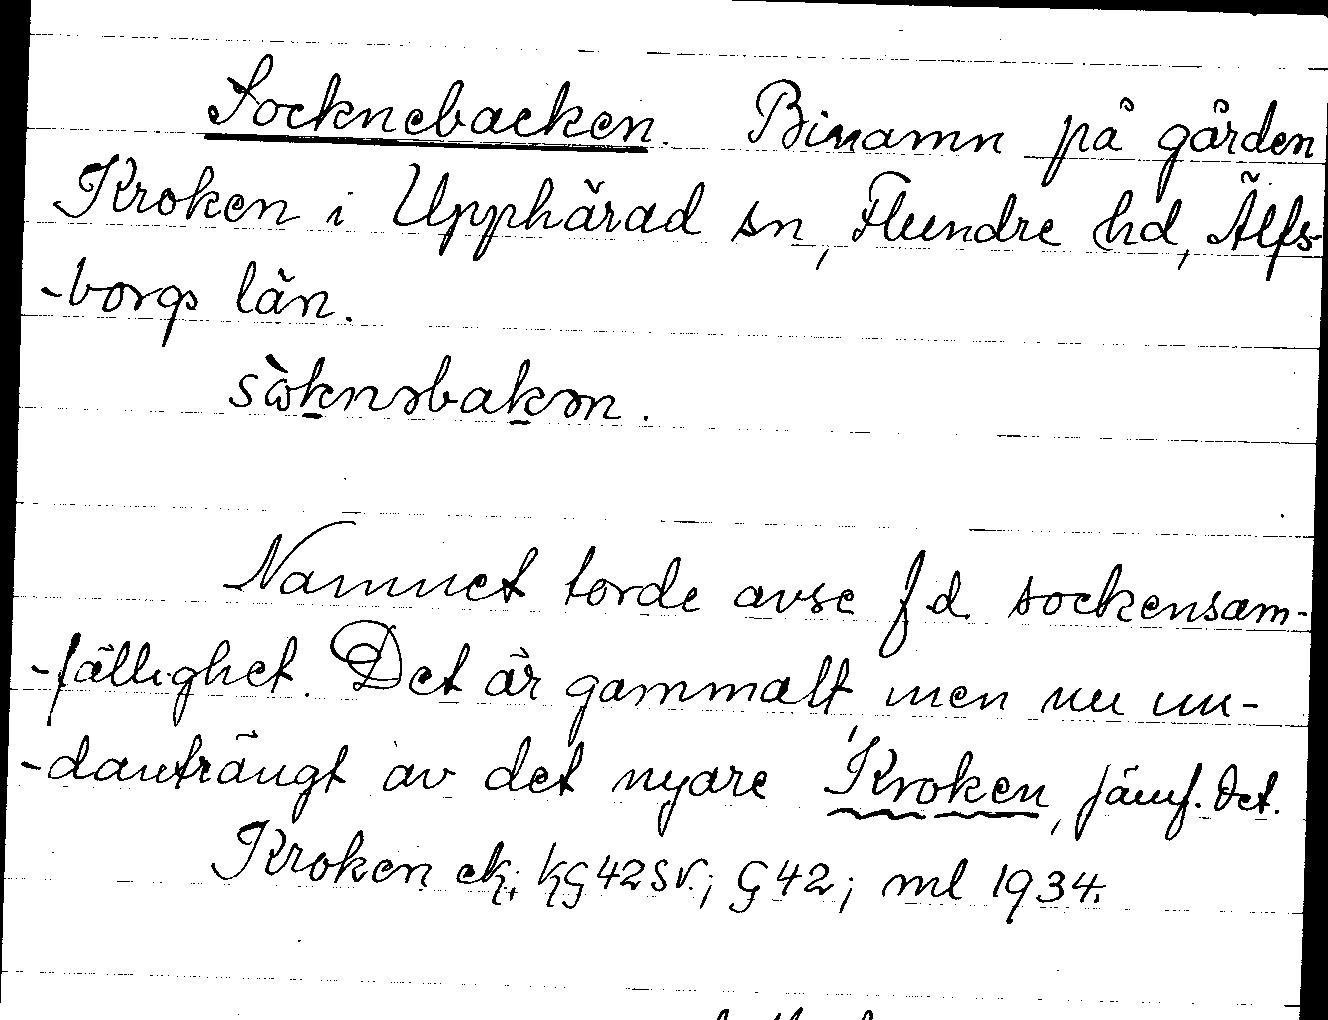 Socknebacken. Binamn på gården
Kroken i Upphärad sn, Flundre hd, Älfs-
-borgs län.
sὼknəbakən.
Namnet torde avse f d. sockensam-
-fällighet. Det är gammalt, men nu un-
-danträngt av det nyare Kroken, jämf. det.
Kroken ek; kG42SV.; G42; ml 1934.